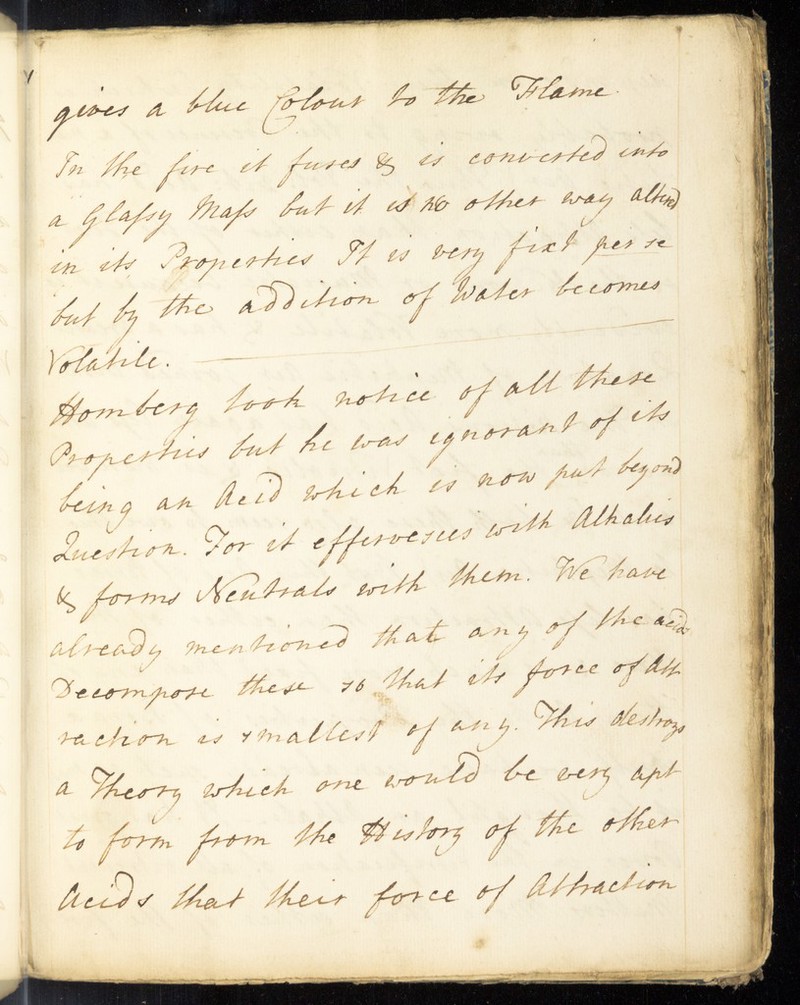 gives a blue Colour to the Flame
In the fire it fuses & is converted into
a Glassy Mass but it is no other way alterd
in its Properties It is very fixt per se
but by the addition of Water becomes
Volatile.
Homberg took notice of all these
Properties but he was ignorant of its
being an Acid which is now put beyond
Question. For it effervesces with Alkalis
& forms Neutrals with them. We have
already mentioned that any of the acids
Decompose these so that its force of Att
raction is smallest of any. This destroys
a Theory which one would be very apt
to form from the History of the other
Acids that their force of Attraction